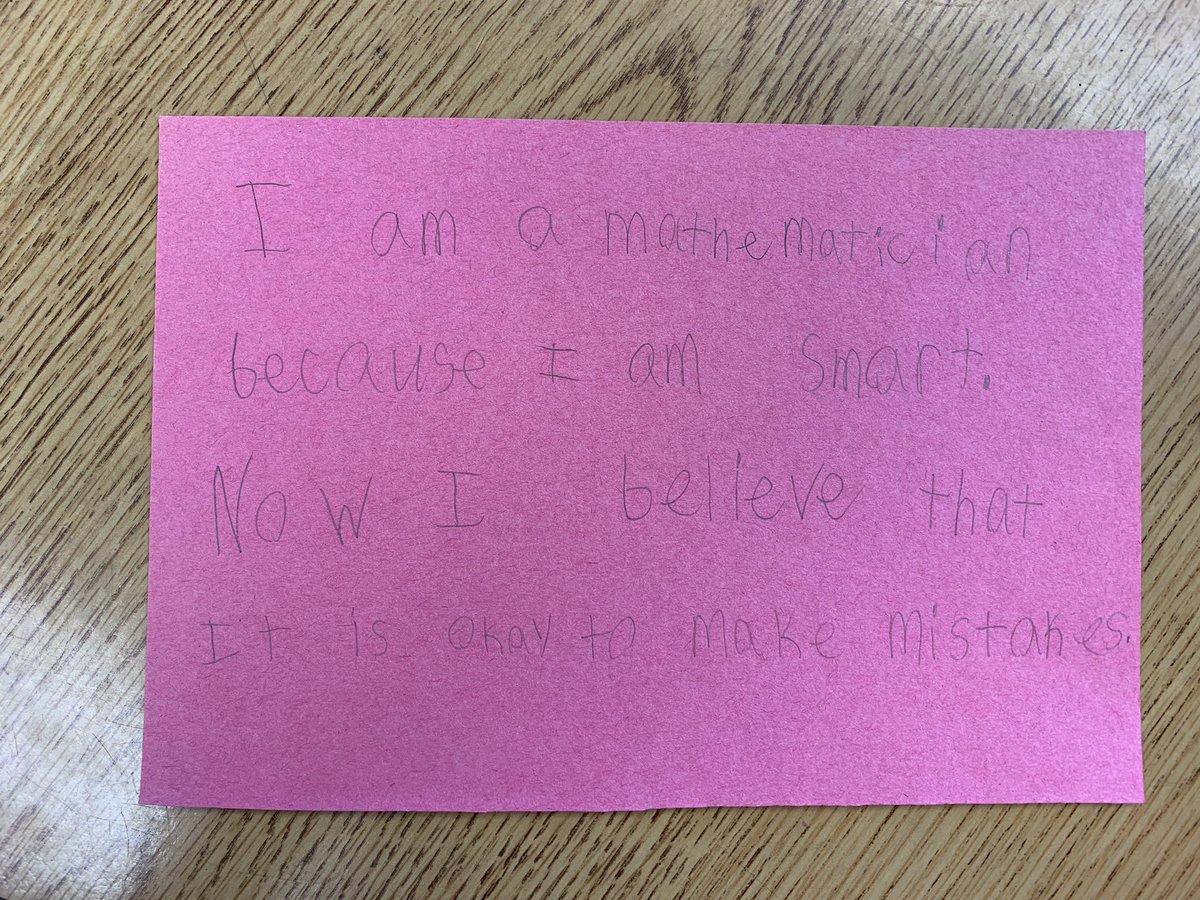 I am a mathematician
because I am smart.
Now I believe that
It is okay to make mistakes.